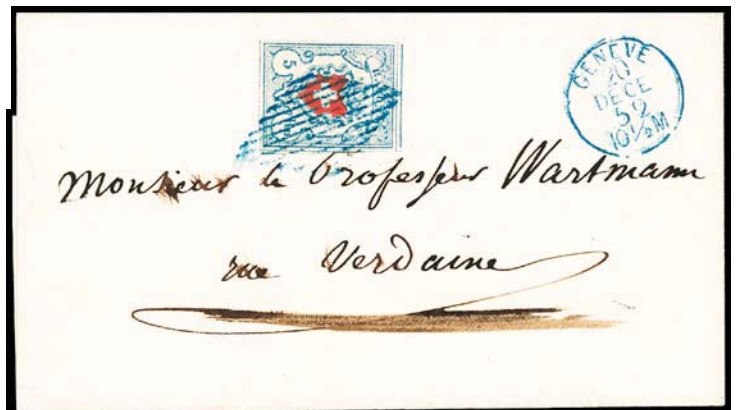 5
GENÈVE
20
DECE
52
10½M
Monsieur le Professeur Wartmann
rue Verdaine